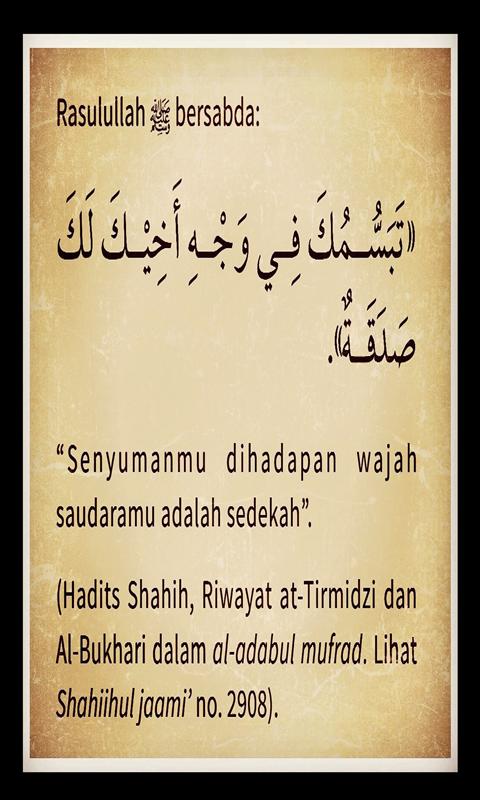 Rasulullah ﷺ bersabda:
«تَبَسُّمُكَ فِي وَجْهِ أَخِيْكَ لَكَ
صَدَقَةٌ».
“Senyumanmu dihadapan wajah
saudaramu adalah sedekah”.
(Hadits Shahih, Riwayat at-Tirmidzi dan
Al-Bukhari dalam al-adabul mufrad. Lihat
Shahiihul jaami’ no. 2908).